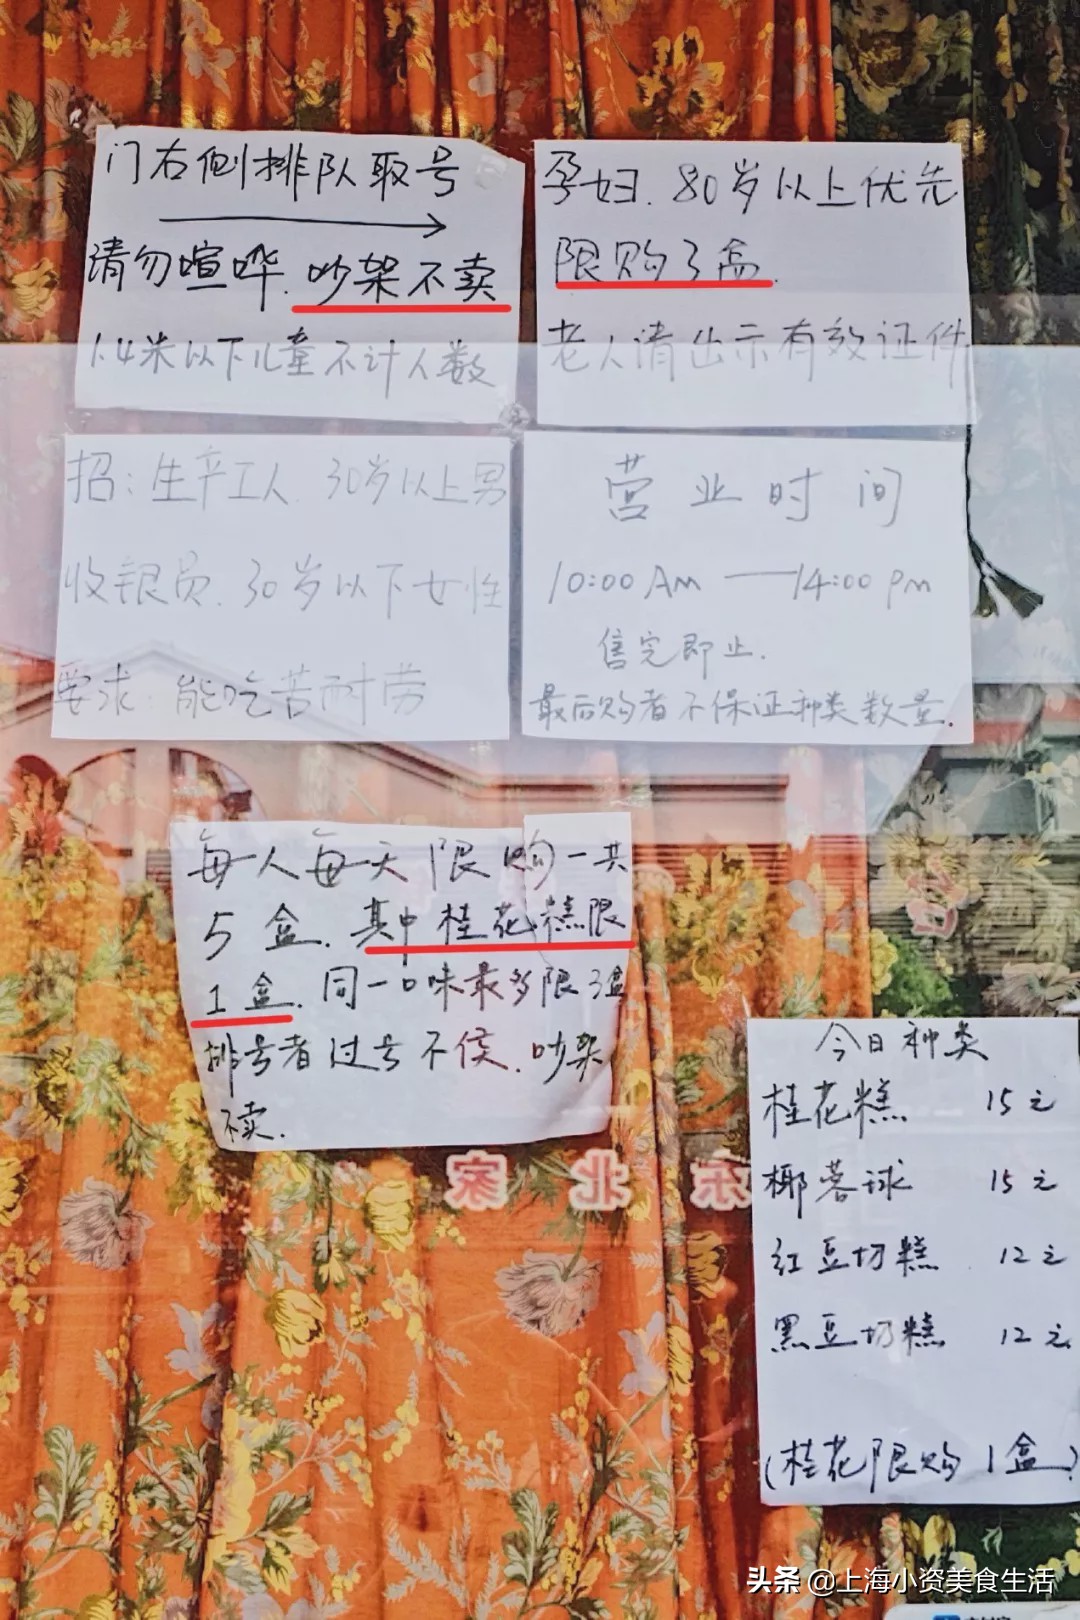 门右侧排队取号
请勿喧哗.吵架不卖
1.4米以下儿童不计人数
孕妇.80岁以上优先
限购3盒.
老人请出示有效证件
招:生产工人.30岁以上男
收银员.30岁以下女性
要求:能吃苦耐劳
营业时间
10:00 Am — 14:00 pm
售完即止.
最后购者不保证种类数量.
每人每天限购一共
5盒.其中桂花糕限
1盒.同一口味最多限3盒
排号者过号不侯.吵架
不卖.
东北家
今日种类
桂花糕 15元
椰蓉球 15元
红豆切糕 12元
黑豆切糕 12元
(桂花限购1盒)
头条 @上海小资美食生活